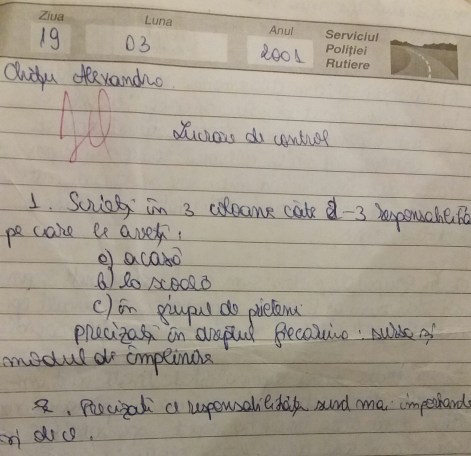 Ziua Luna Anul Serviciul Poliției Rutiere
19 03 2001
Chițu Alexandra
Lucrare de control
1. Scrieți în 3 coloane câte 2-3 responsabilită
pe care le aveți:
a) acasă
b) la școală
c) în grupul de prieteni
precizați în dreptul fiecăruia: sursa și
modul de împlinire
2. Precizați ce responsabilități sund mai importande
și de ce.